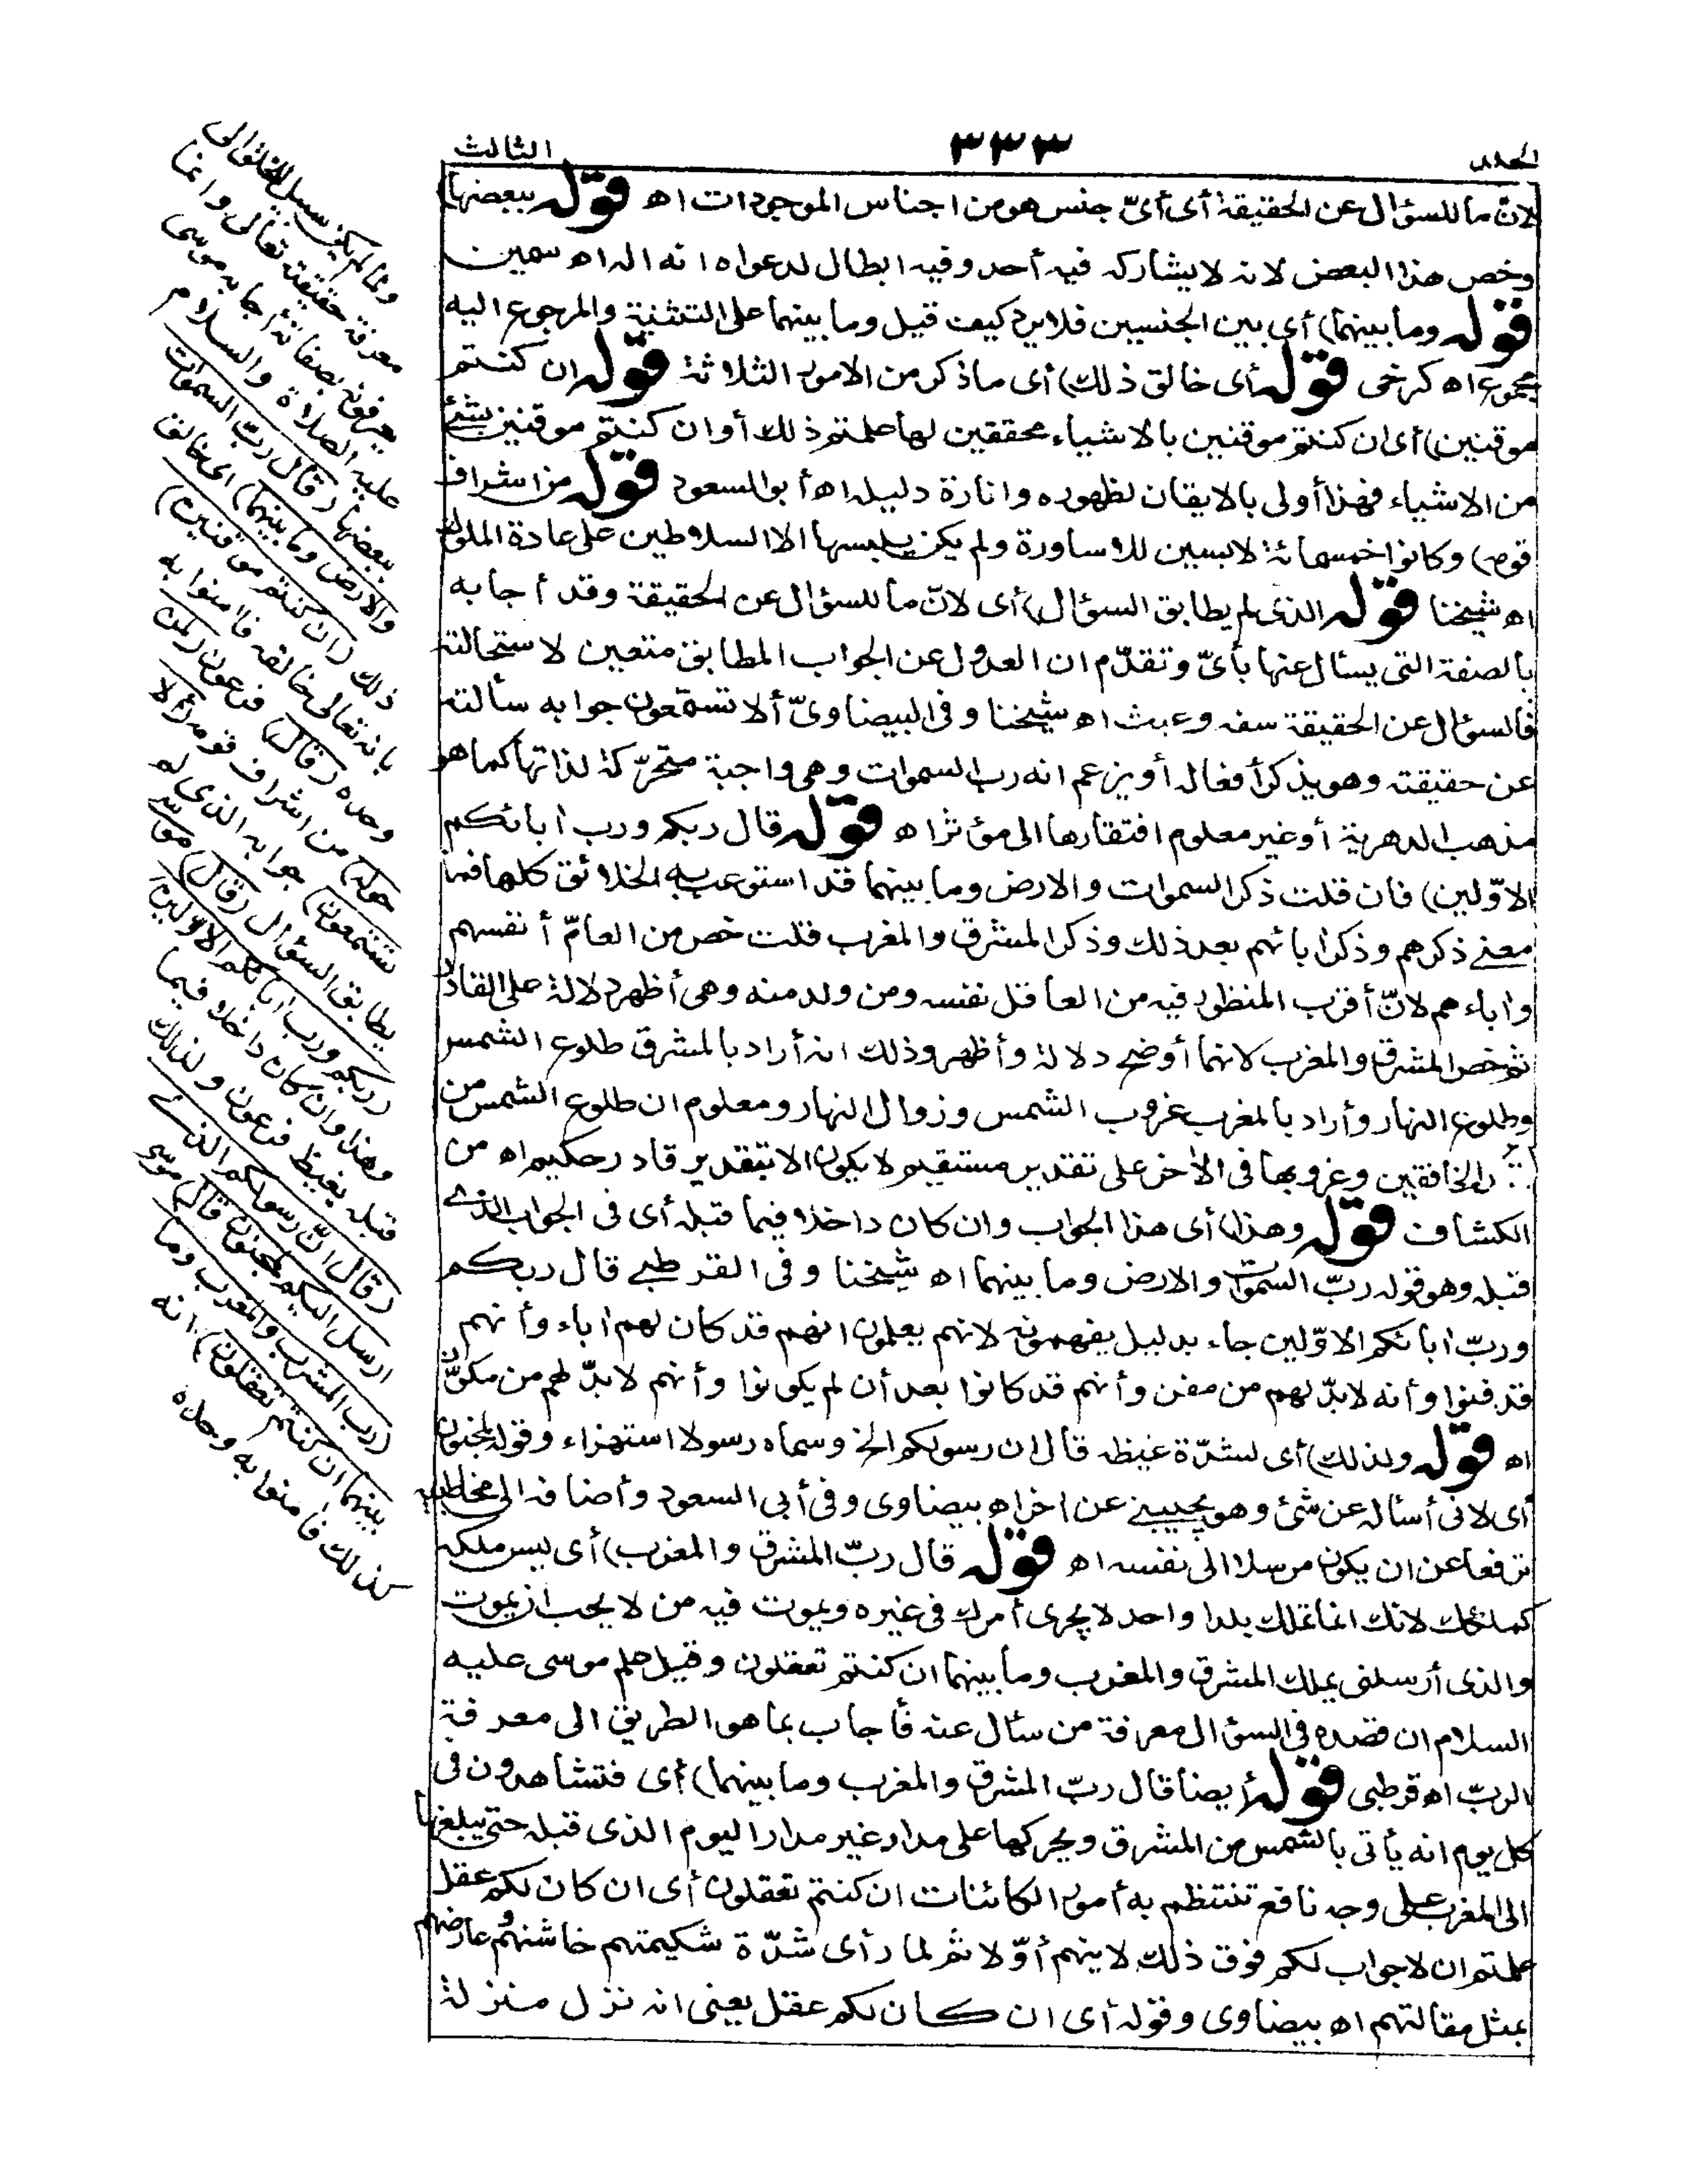 المجلد ٣٣٣ الثالث
لانّ ما للسؤال عن الحقيقة أى أىّ جنس هو من اجناس الموجودات اه قوله ببعضها)
وخص هذا البعض لانه لا يشاركه فيه أحد وفيه ابطال لدعواه انه اله اه سمين
قوله وما بينهما) أى بين الجنسين فلا يرد كيف قيل وما بينهما على التثنية والمرجوع اليه
مجموع اه كرخى قوله أى خالق ذلك) أى ما ذكر من الامور الثلاثة قوله ان كنتم
موقنين) أى ان كنتم موقنين بالاشياء محققين لها علمتم ذلك أو ان كنتم موقنين بشئ
من الاشياء فهذا أولى بالايقان لظهوره وانارة دليله اه أبو السعود قوله من اشراف
قومه) وكانوا خمسمائة لابسين للاساورة ولم يكن يلبسها الا السلاطين على عادة الملوك
اه شيخنا قوله الذى لم يطابق السؤال) أى لانّ ما للسؤال عن الحقيقة وقد أجابه
بالصفة التى يسأل عنها بأىّ وتقدّم ان العدول عن الجواب المطابق متعين لاستحالته
فالسؤال عن الحقيقة سفه وعبث اه شيخنا وفى البيضاوىّ ألا تستمعون جوابه سألته
عن حقيقته وهو يذكر أفعاله أو يزعم انه رب السموات وهى واجبة متحرّكة لذاتها كما هو
مذهب الدهرية أو غير معلوم افتقارها الى مؤثر اه قوله قال ربكم ورب اٰبائكم
الاوّلين) فان قلت ذكر السموات والارض وما بينهما قد استوعب به الخلائق كلها فما
معنے ذكرهم وذكر اٰبائهم بعد ذلك وذكر المشرق والمغرب قلت خص من العامّ أنفسهم
واٰباءهم لانّ أقرب المنظور فيه من العاقل نفسه ومن ولد منه وهى أظهر دلالة على القادر
ثم خص المشرق والمغرب لانهما أوضح دلالة وأظهر وذلك انه أراد بالمشرق طلوع الشمس
وطلوع النهار وأراد بالمغرب غروب الشمس وزوال النهار ومعلوم ان طلوع الشمس من
الخافقين وغروبها فى الاٰخر على تقدير مستقيم لا يكون الا بتقدير قادر حكيم اه من
الكشاف قوله وهذا) أى هذا الجواب وان كان داخلا فيما قبله أى فى الجواب الذے
قبله وهو قوله ربّ السمٰوات والارض وما بينهما اه شيخنا وفى القرطبے قال ربكم
وربّ اٰبائكم الاوّلين جاء بدليل يفهمونه لانهم يعلمون انهم قد كان لهم اٰباء وأنهم
قد فنوا وأنه لا بدّ لهم من مفن وأنهم قد كانوا بعد أن لم يكونوا وأنهم لا بدّ لهم من مكوّن
اه قوله ولذلك) أى لشدّة غيظه قال ان رسولكم الخ وسماه رسولا استهزاء وقوله لمجنون
أى لانى أسأله عن شئ وهو يجيبنے عن اٰخر اه بيضاوى وفى أبى السعود وأضافه الى مخاطبيه
ترفعا عن ان يكون مرسلا الى نفسه اه قوله قال ربّ المشرق والمغرب) أى ليس ملكه
كملكك لانك انما تملك بلدا واحد لا يجرى أمرك فى غيره ويموت فيه من لا يحب ان يموت
والذى أرسلنى يملك المشرق والمغرب وما بينهما ان كنتم تعقلون وقيل علم موسى عليه
السلام ان قصده فى السؤال معرفة من سأل عنه فأجاب بما هو الطريق الى معرفة
الربّ اه قرطبى قوله أيضا قال ربّ المشرق والمغرب وما بينهما) أى فتشاهدون فى
كل يوم انه يأتى بالشمس من المشرق ويحركها على مدار غير مدار اليوم الذى قبله حتى يبلغها
الى المغرب على وجه نافع تنتظم به أمور الكائنات ان كنتم تعقلون أى ان كان لكم عقل
علمتم ان لا جواب لكم فوق ذلك لاينهم أوّلا ثم لما رأى شدّة شكيمتهم خاشنهم وعارضهم
بمثل مقالتهم اه بيضاوى وقوله أى ان كان لكم عقل يعنى انه نزل منزلة
ولما لم يكن سبيل للخلق الى
معرفة حقيقته تعالى وانما
يعرفونه بصفاته أجابه موسى
عليه الصلاة والسلام
ببعضها (قال رب السموات
والارض وما بينهما) اى خالق
ذلك (ان كنتم موقنين)
بانه تعالى خالقه فاٰمنوا به
وحده (قال) فرعون (لمن
حوله) من اشراف قومه (ألا
تستمعون) جوابه الذى لم
يطابق السؤال (قال) موسى
(ربكم ورب اٰبائكم الاوّلين)
وهذا وان كان داخلا فيما
قبله يغيظ فرعون ولذلك
(قال انّ رسولكم الذے
ارسل اليكم لمجنون قال) موسى
(رب المشرق والمغرب وما
بينهما ان كنتم تعقلون) انه
كذلك فاٰمنوا به وحده